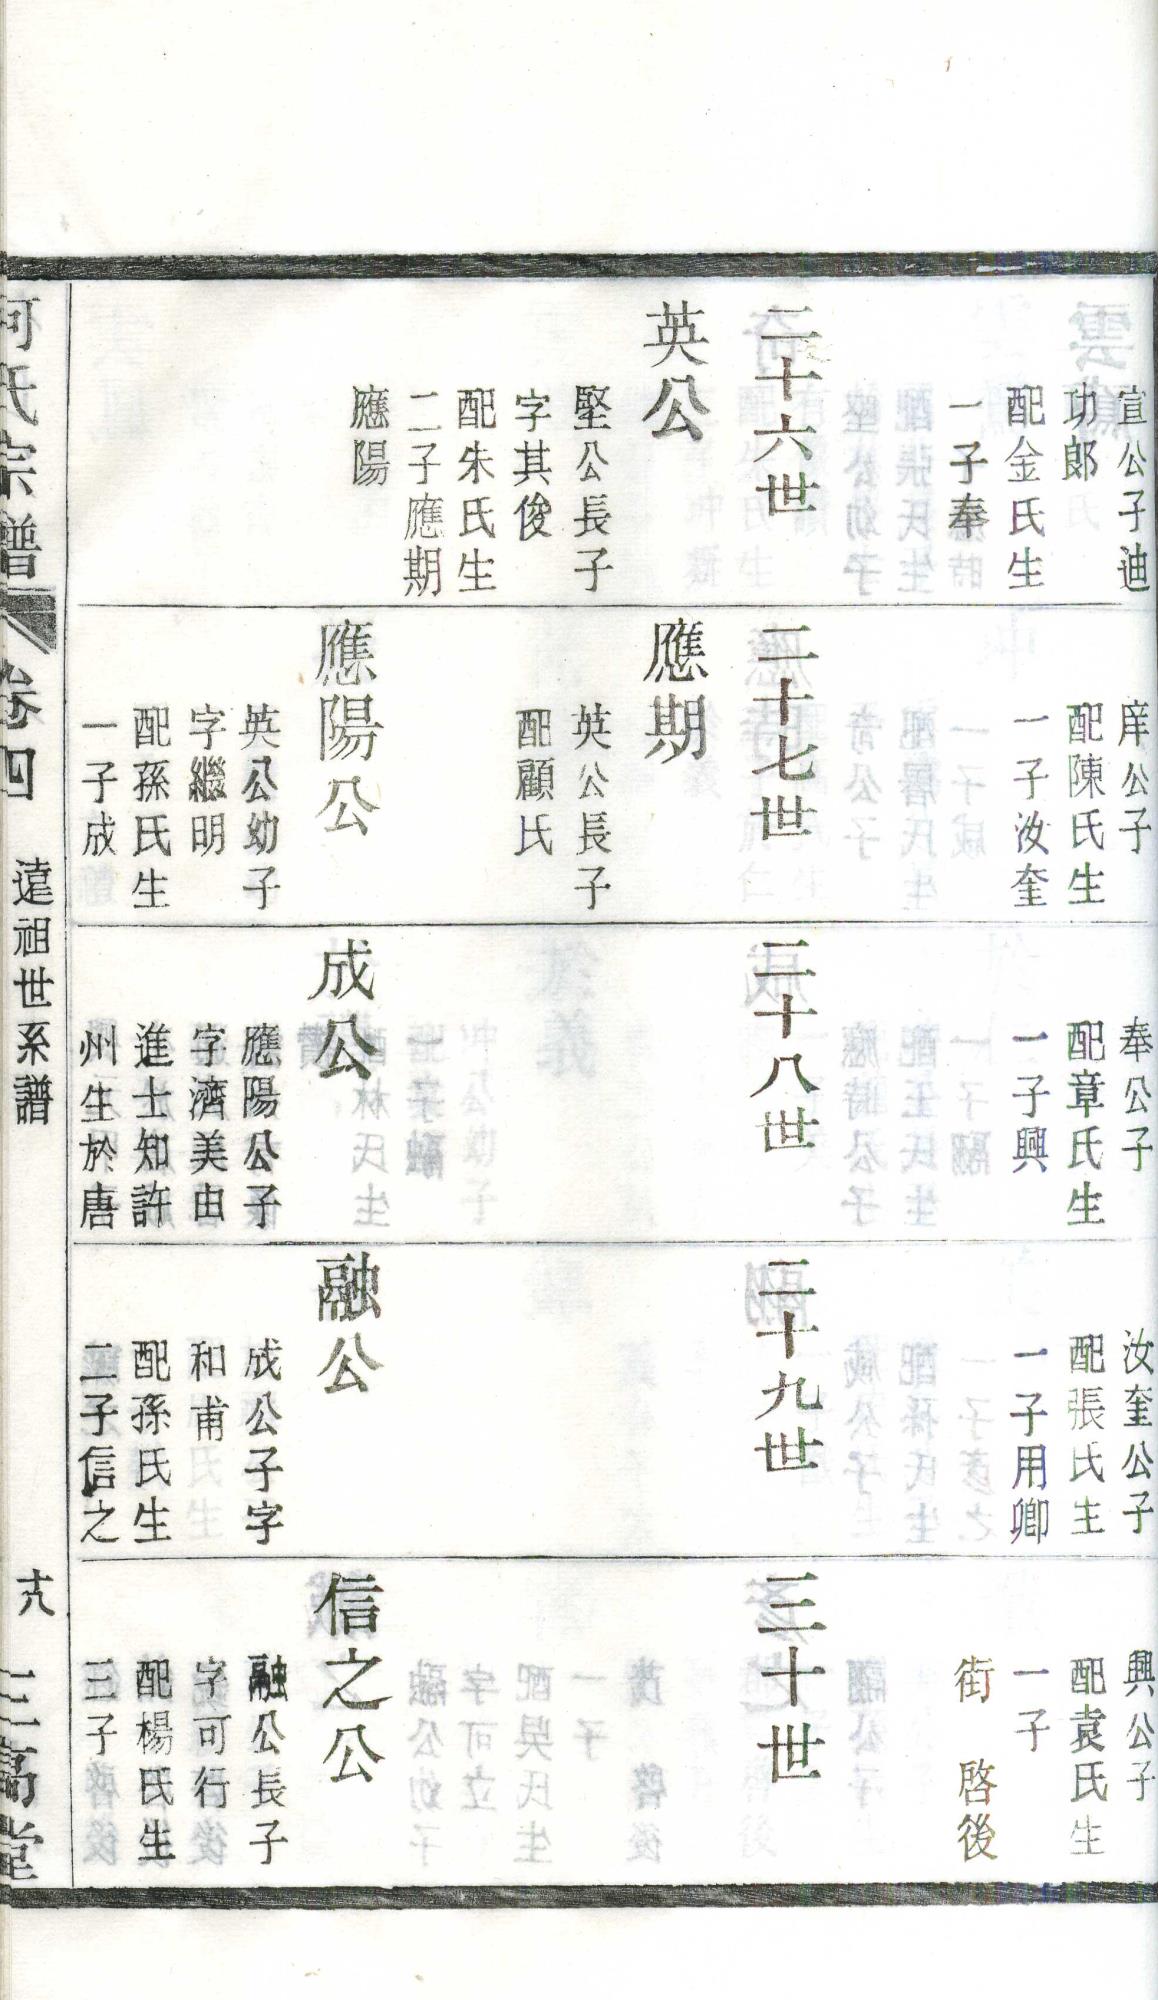 宣公子迪
功郎
配金氏生
一子奉
二十六世
英公
堅公長子
字其俊
配朱氏生
二子應期
應陽
庠公子
配陳氏生
一子汝奎
二十七世
應期
英公長子
配顧氏
應陽公
英公幼子
字繼明
配孫氏生
一子成
奉公子
配章氏生
一子興
二十八世
成公
應陽公子
字濟美由
進士知許
州生於唐
汝奎公子
配張氏生
一子用卿
二十九世
融公
成公子字
和甫
配孫氏生
二子信之
興公子
配袁氏生
一子
街 啓後
三十世
信之公
融公長子
字可行
配楊氏生
三子
何氏宗譜 卷四 遠祖世系譜 十八 三高堂